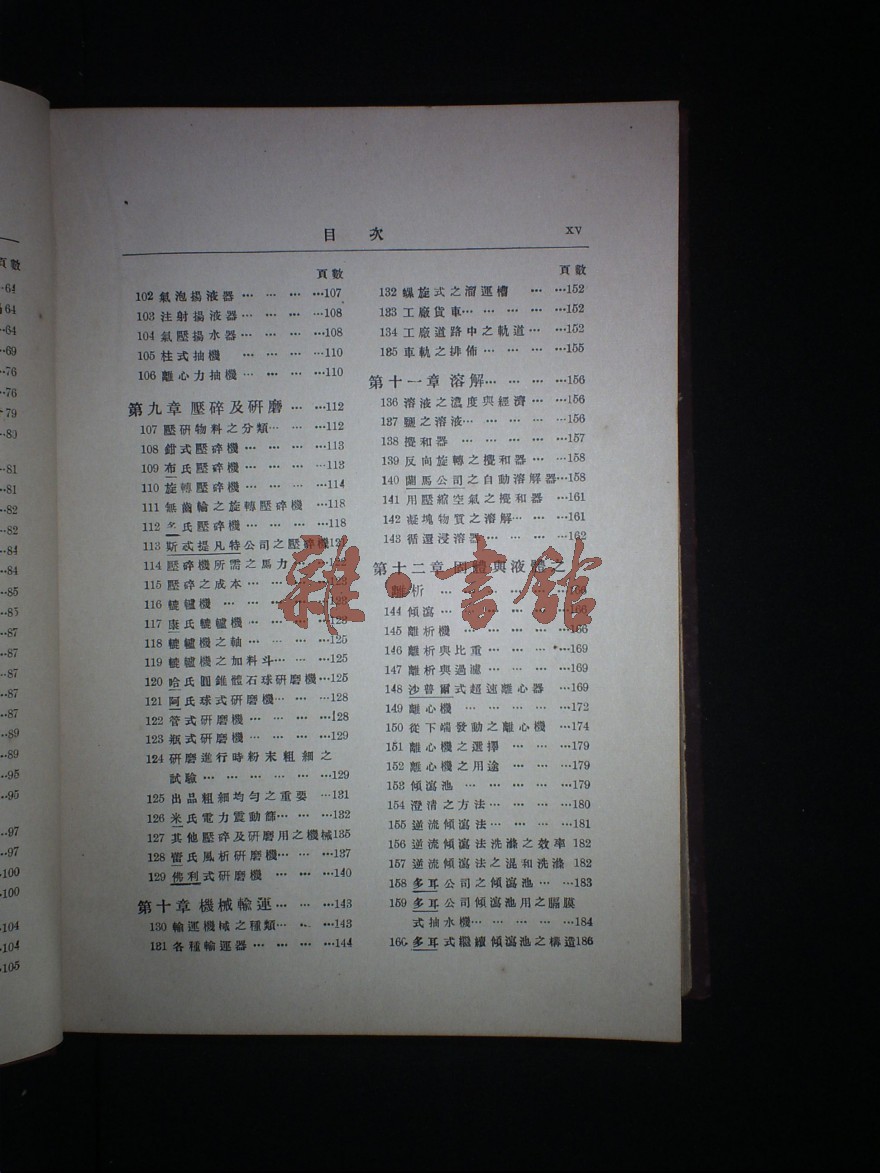 頁數
64
64
64
69
76
76
79
80
81
81
82
82
84
84
85
85
87
87
87
87
89
89
95
95
97
97
100
100
104
104
105
目 次 XV
頁數
102 氣泡揚液器 … … … …107
103 注射揚液器… … … …108
104 氣壓揚水器 … … … …108
105 柱式抽機 … … … …110
106 離心力抽機… … … …110
第九章 壓碎及研磨 … …112
107 壓研物料之分類… … …112
108 鉗式壓碎機 … … … …113
109 布氏壓碎機 … … … …113
110 旋轉壓碎機 … … … …114
111 無齒輪之旋轉壓碎機 …118
112 氏壓碎機 … … … …118
113 斯式提凡特公司之壓碎機121
114 壓碎機所需之馬力… …122
115 壓碎之成本 … … … …123
116 轆轤機 … … … …
117 康氏轆轤機 … … …123
118 轆轤機之軸 … … … …125
119 轆轤機之加料斗… … …125
120 哈氏圓錐體石球研磨機…125
121 阿氏球式研磨機… … …128
122 管式研磨機 … … … …128
123 瓶式研磨機 … … … …129
124 研磨進行時粉末粗細之
試驗 … … … … …129
125 出品粗細均勻之重要 …131
126 米氏電力震動篩… … …132
127 其他壓碎及研磨用之機械135
128 雷氏風析研磨機… … …137
129 佛利式研磨機 … … …140
第十章 機械輸運 … … …143
130 輸運機械之種類… … …143
131 各種輸運器 … … … …144
頁數
132 螺旋式之溜運槽 … …152
133 工廠貨車… … … … …152
134 工廠道路中之軌道… …152
135 車軌之排佈 … … … …155
第十一章 溶解… … … …156
136 溶液之濃度與經濟 … …156
137 鹽之溶液… … … … …156
138 攪和器 … … … … …157
139 反向旋轉之攪和器… …158
140 蘭馬公司之自動溶解器…158
141 用壓縮空氣之攪和器 …161
142 凝塊物質之溶解… … …161
143 循還浸溶器… … … …162
第十二章 固體與液體之
離析 … … … … …166
144 傾瀉 … … … … … …166
145 離析機 … … … … …166
146 離析與比重 … … … …169
147 離析與過濾 … … … …169
148 沙普爾式超速離心器 …169
149 離心機 … … … … …172
150 從下端發動之離心機 …174
151 離心機之選擇 … … …179
152 離心機之用途 … … …179
153 傾瀉池 … … … … …179
154 澄清之方法… … … …180
155 逆流傾瀉法… … … …181
156 逆流傾瀉法洗滌之效率 182
157 逆流傾瀉法之混和洗滌 182
158 多耳公司之傾瀉池… …183
159 多耳公司傾瀉池用之膈膜
式抽水機… … … … …184
160 多耳式繼續傾瀉池之構造186
雜·書館